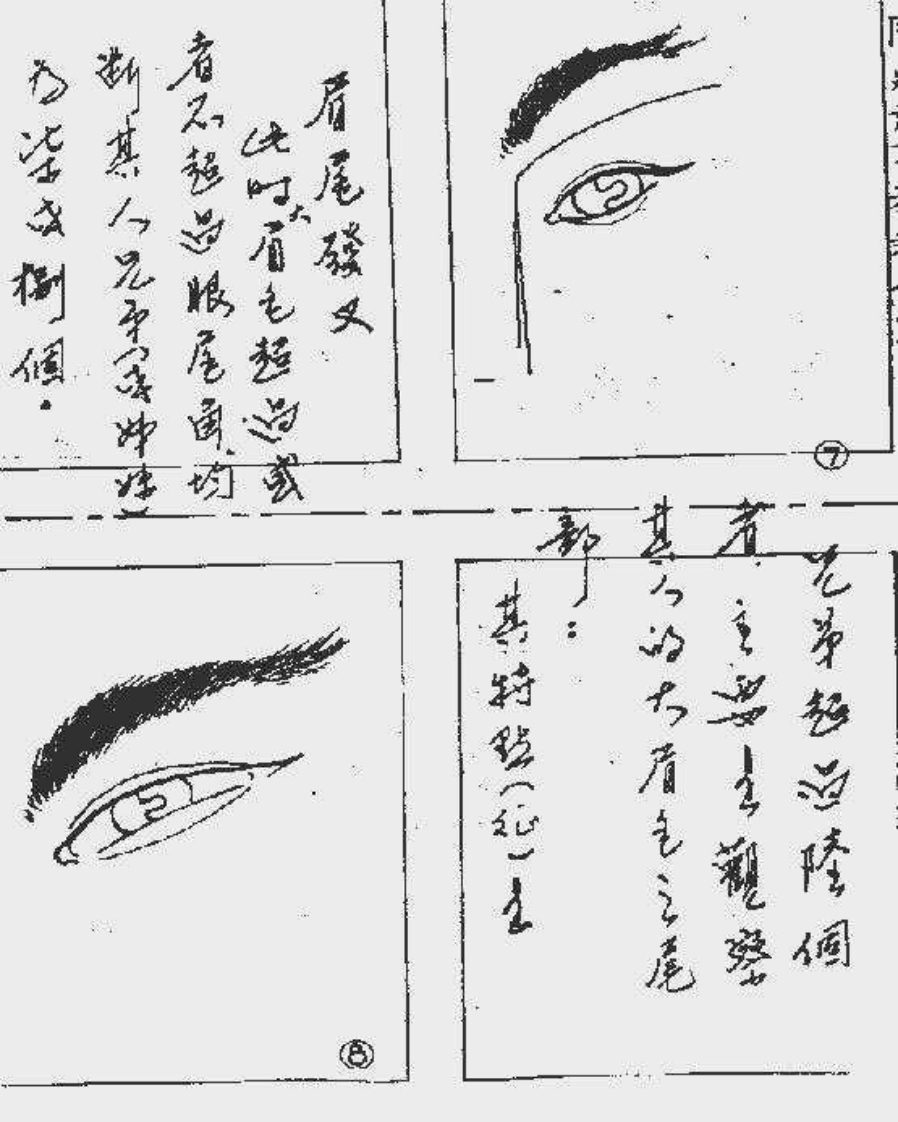 ⑦
眉尾發叉
此時大眉毛超過或
者不超過眼尾面,均
斷其人兄弟(或姊妹)
為柒或捌個。
兄弟超過陸個
者,主要在觀察
其人的大眉毛之尾
部:
其特點(征)在
⑧